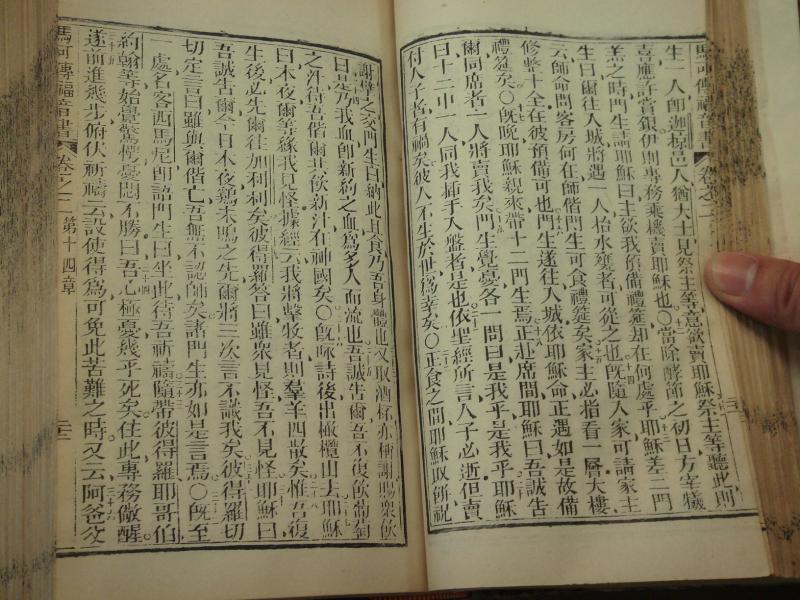 馬可傳福音書 卷之二
生一人卽迦掠邑人猶大士見祭主等意欲賣耶穌祭主等聽此則
喜應許賞銀伊則專務乘機賣耶穌也〇當除酵節之初日方宰犧
羔之時門生請耶穌曰主欲我預備禮筵却在何處乎耶穌差二門
生曰爾往入城將遇一人抬水甕者可從之也旣隨人家可請家主
云師命問客房何在師偕門生可食禮筵矣家主必指看一層大樓
修整十全在彼預備可也門生遂往入城依耶穌命正遇如是故備
禮筵矣〇旣晚耶穌親來帶十二門生焉正赴席間耶穌曰吾誠告
爾同席者一人將賣我矣門生覺憂各一問曰是我乎是我乎耶穌
曰十二中一人同我插手入盤者是也依聖經所言人子必逝但賣
付人子者有禍矣彼人不生於世爲幸矣〇正食之間耶穌取餅祝
謝擘之交門生曰納此具食乃吾身體也又取酒杯亦種謝賜眾飲
曰是乃我血卽新約之血爲多人而流也吾誠告爾吾不復飲葡萄
之汁待吾偕爾共飲新汁在神國矣〇旣咏詩後出橄欖山去耶穌
曰本夜爾等緣我見怪據經云我將擊牧者則羣羊四散矣惟吾復
生後必先爾往加利利矣彼得羅答曰雖衆見怪吾不見怪耶穌曰
吾誠告爾今日本夜鷄未鳴之先爾將三次言不識我矣彼得羅切
切定言曰雖與爾偕亡吾無不認師矣諸門生亦如是言焉〇旣至
一處名客西馬尼卽語門生曰坐此待吾祈禱隨帶彼得羅耶哥伯
約翰等始覺驚愕憂悶不勝曰吾心極憂幾乎死矣住此專務儆醒
遂前進幾步俯伏祈禱云設使得爲可免此苦難之時又云阿爸父
馬可傳福音書 卷之二 第十四章